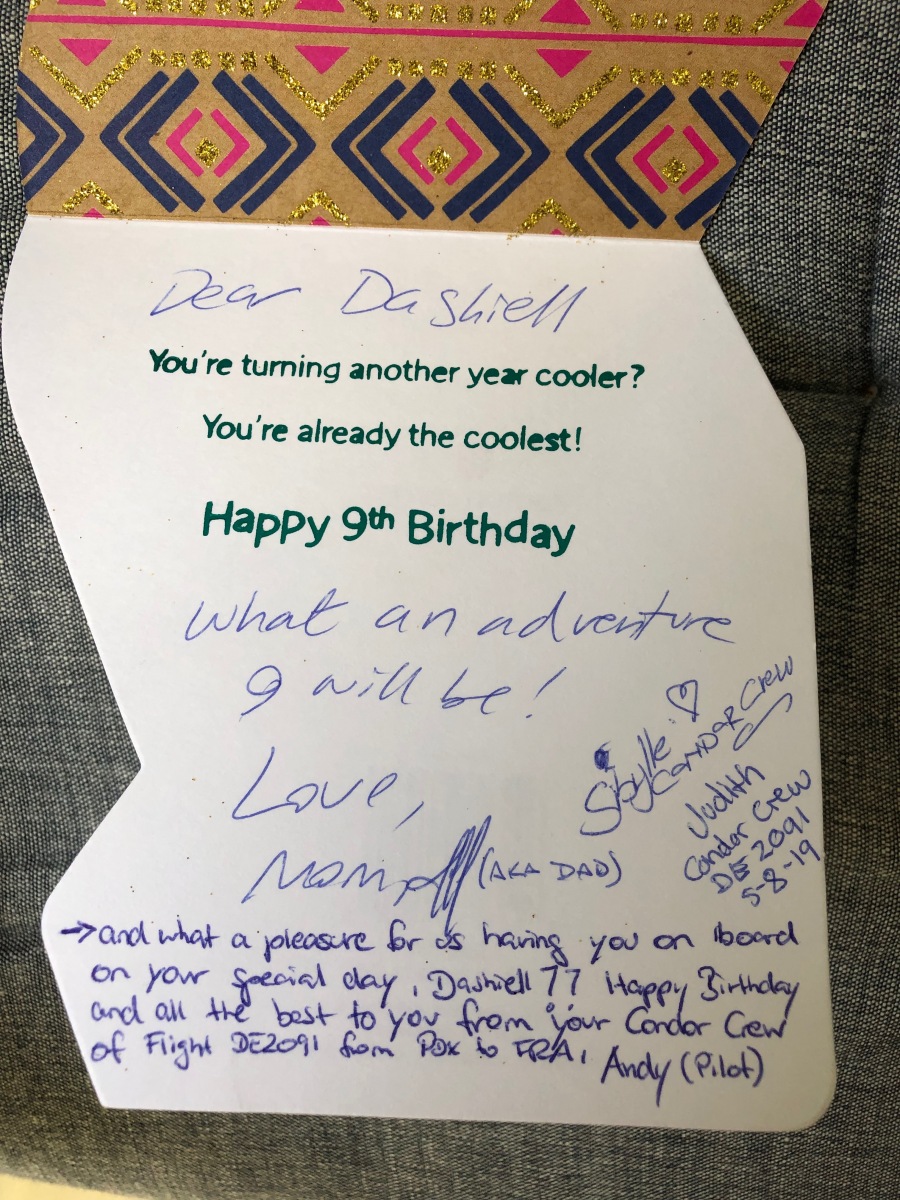 Dear Dashiell
You're turning another year cooler?
You're already the coolest!
Happy 9th Birthday
what an adventure
9 will be!
Love,
Mom
(AKA DAD)
Sibylle ♡
Condor Crew
Judith
Condor Crew
DE 2091
5-8-19
→ and what a pleasure for us having you on board
on your special day, Dashiell 77 Happy Birthday
and all the best to you from your Condor Crew
of Flight DE2091 from PDX to FRA,
Andy (Pilot)